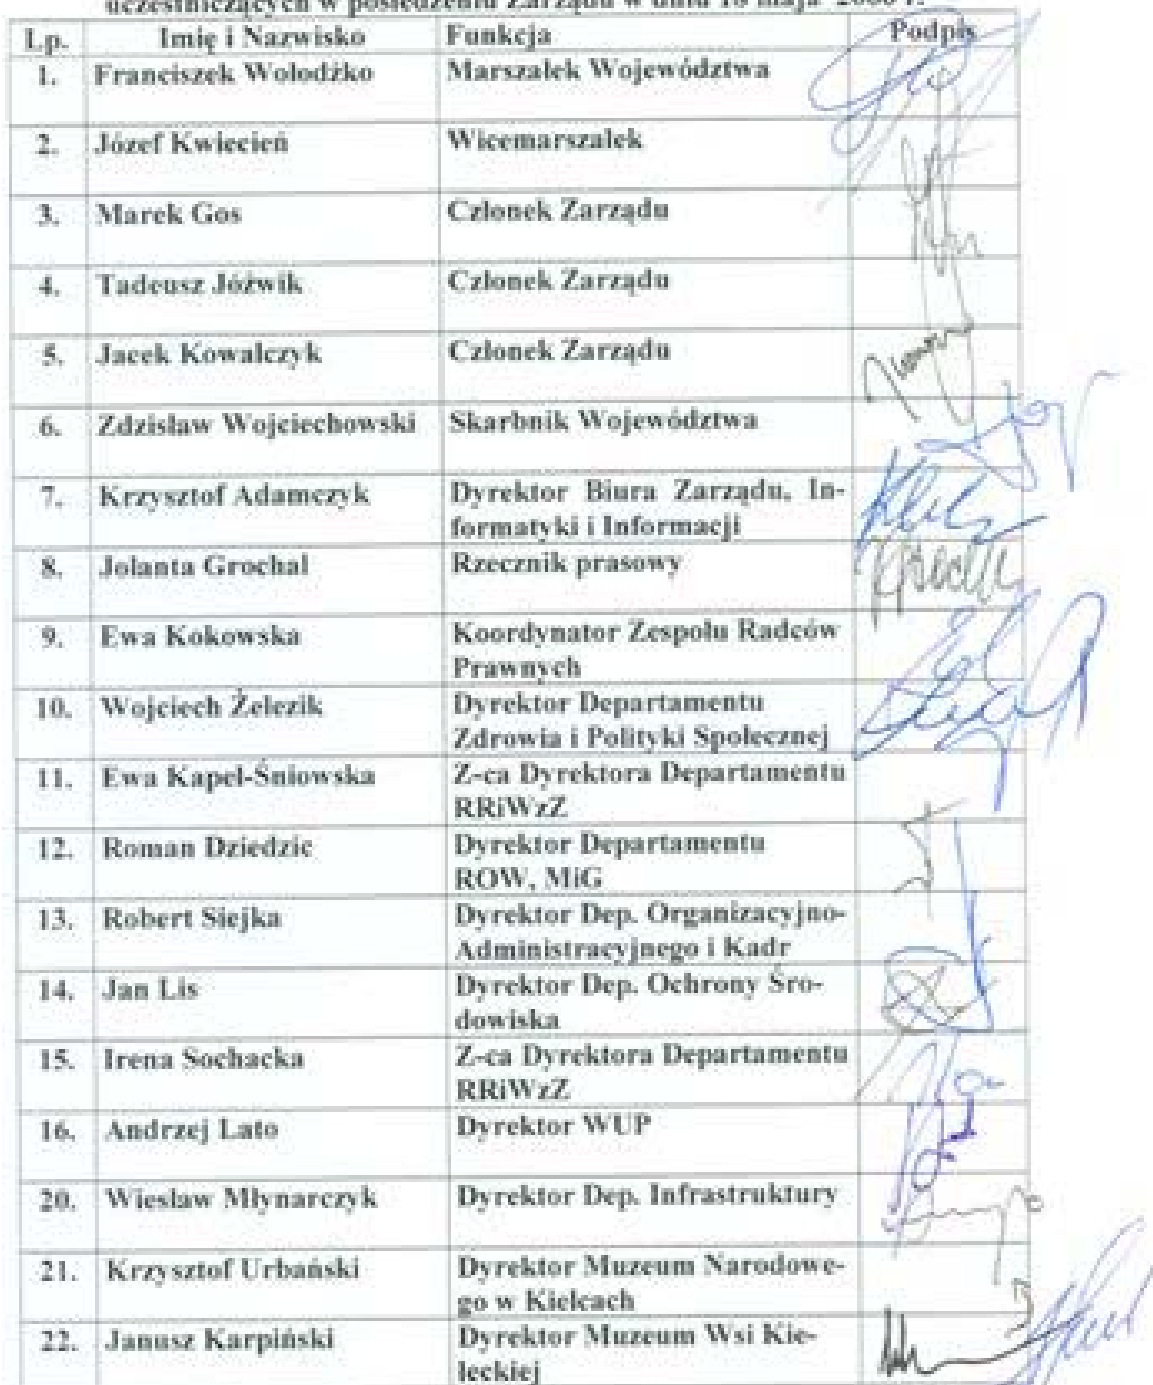 uczestniczących w posiedzeniu Zarządu w dniu maja
Lp. Imię i Nazwisko Funkcja Podpis
1. Franciszek Wołodźko Marszałek Województwa
2. Józef Kwiecień Wicemarszałek
3. Marek Gos Członek Zarządu
4. Tadeusz Jóźwik Członek Zarządu
5. Jacek Kowalczyk Członek Zarządu
6. Zdzisław Wojciechowski Skarbnik Województwa
7. Krzysztof Adamczyk Dyrektor Biura Zarządu, In-
formatyki i Informacji
8. Jolanta Grochal Rzecznik prasowy
9. Ewa Kokowska Koordynator Zespołu Radców
Prawnych
10. Wojciech Żelezik Dyrektor Departamentu
Zdrowia i Polityki Społecznej
11. Ewa Kapel-Śniowska Z-ca Dyrektora Departamentu
RRiWzZ
12. Roman Dziedzic Dyrektor Departamentu
ROW, MiG
13. Robert Siejka Dyrektor Dep. Organizacyjno-
Administracyjnego i Kadr
14. Jan Lis Dyrektor Dep. Ochrony Śro-
dowiska
15. Irena Sochacka Z-ca Dyrektora Departamentu
RRiWzZ
16. Andrzej Lato Dyrektor WUP
20. Wiesław Młynarczyk Dyrektor Dep. Infrastruktury
21. Krzysztof Urbański Dyrektor Muzeum Narodowe-
go w Kielcach
22. Janusz Karpiński Dyrektor Muzeum Wsi Kie-
leckiej